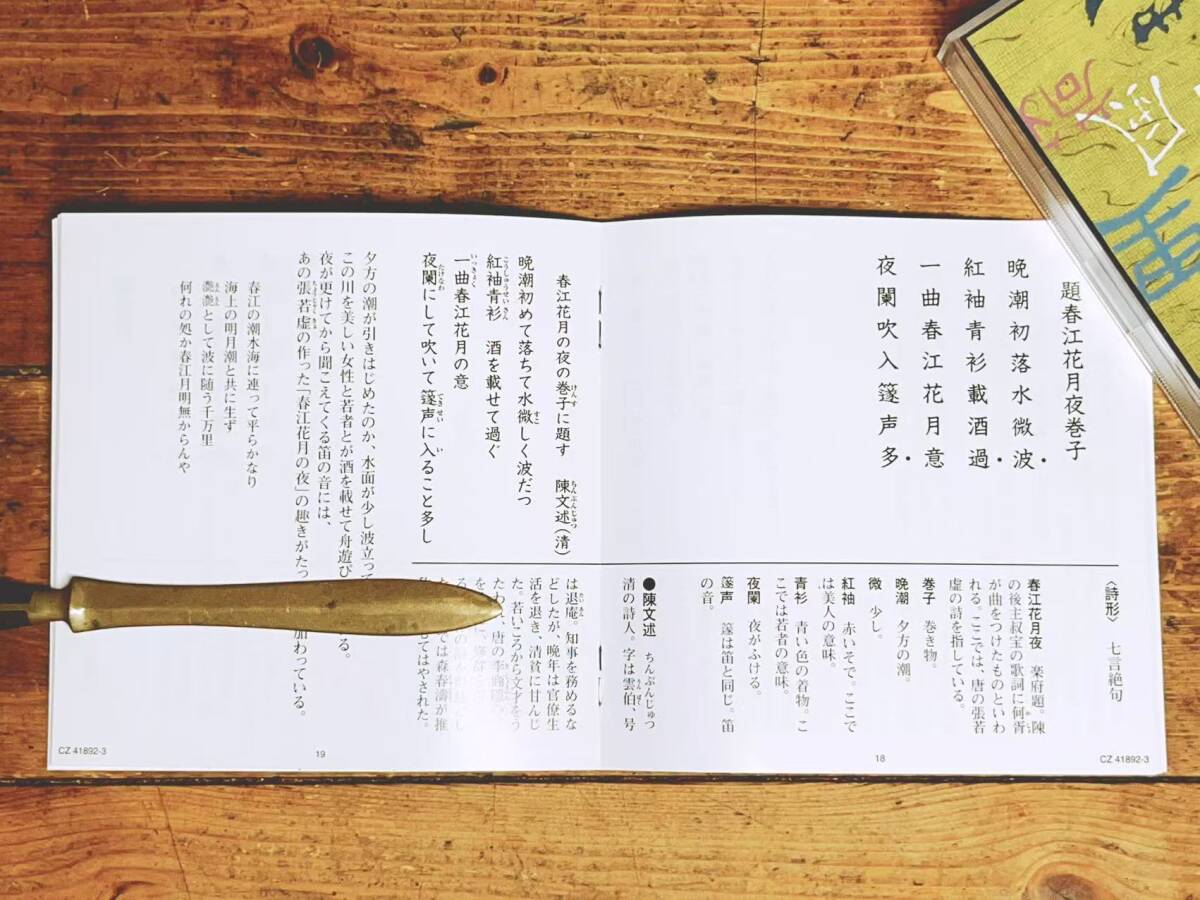 題春江花月夜巻子
晩潮初落水微波
紅袖青衫載酒過
一曲春江花月意
夜闌吹入篴声多
〈詩形〉 七言絶句
春江花月夜 楽府題。陳
の後主叔宝の歌詞に何胥
が曲をつけたものといわ
れる。ここでは、唐の張若
虚の詩を指している。
巻子 巻き物。
晩潮 夕方の潮。
微 少し。
紅袖 赤いそで。ここで
は美人の意味。
青衫 青い色の着物。こ
こでは若者の意味。
夜闌 夜がふける。
篴声 篴は笛と同じ。笛
の音。
●陳文述 ちんぶんじゅつ
清の詩人。字は雲伯、号
は退庵。知事を務めるな
どしたが、晩年は官僚生
活を退き、清貧に甘んじ
た。若いころから文才をう
たわ 、唐の李商隠
では森春濤が推
てはやされた。
春江花月の夜の巻子に題す 陳文述(清)
晩潮初めて落ちて水微しく波だつ
紅袖青衫 酒を載せて過ぐ
一曲春江花月の意
夜闌にして吹いて篴声に入ること多し
夕方の潮が引きはじめたのか、水面が少し波立って
この川を美しい女性と若者とが酒を載せて舟遊び る。
夜が更けてから聞こえてくる笛の音には、
あの張若虚の作った「春江花月の夜」の趣きがたっ 加わっている。
春江の潮水海に連って平らかなり
海上の明月潮と共に生ず
灔灔として波に随う千万里
何れの処か春江月明無からんや
18
CZ 41892-3
19
CZ 41892-3